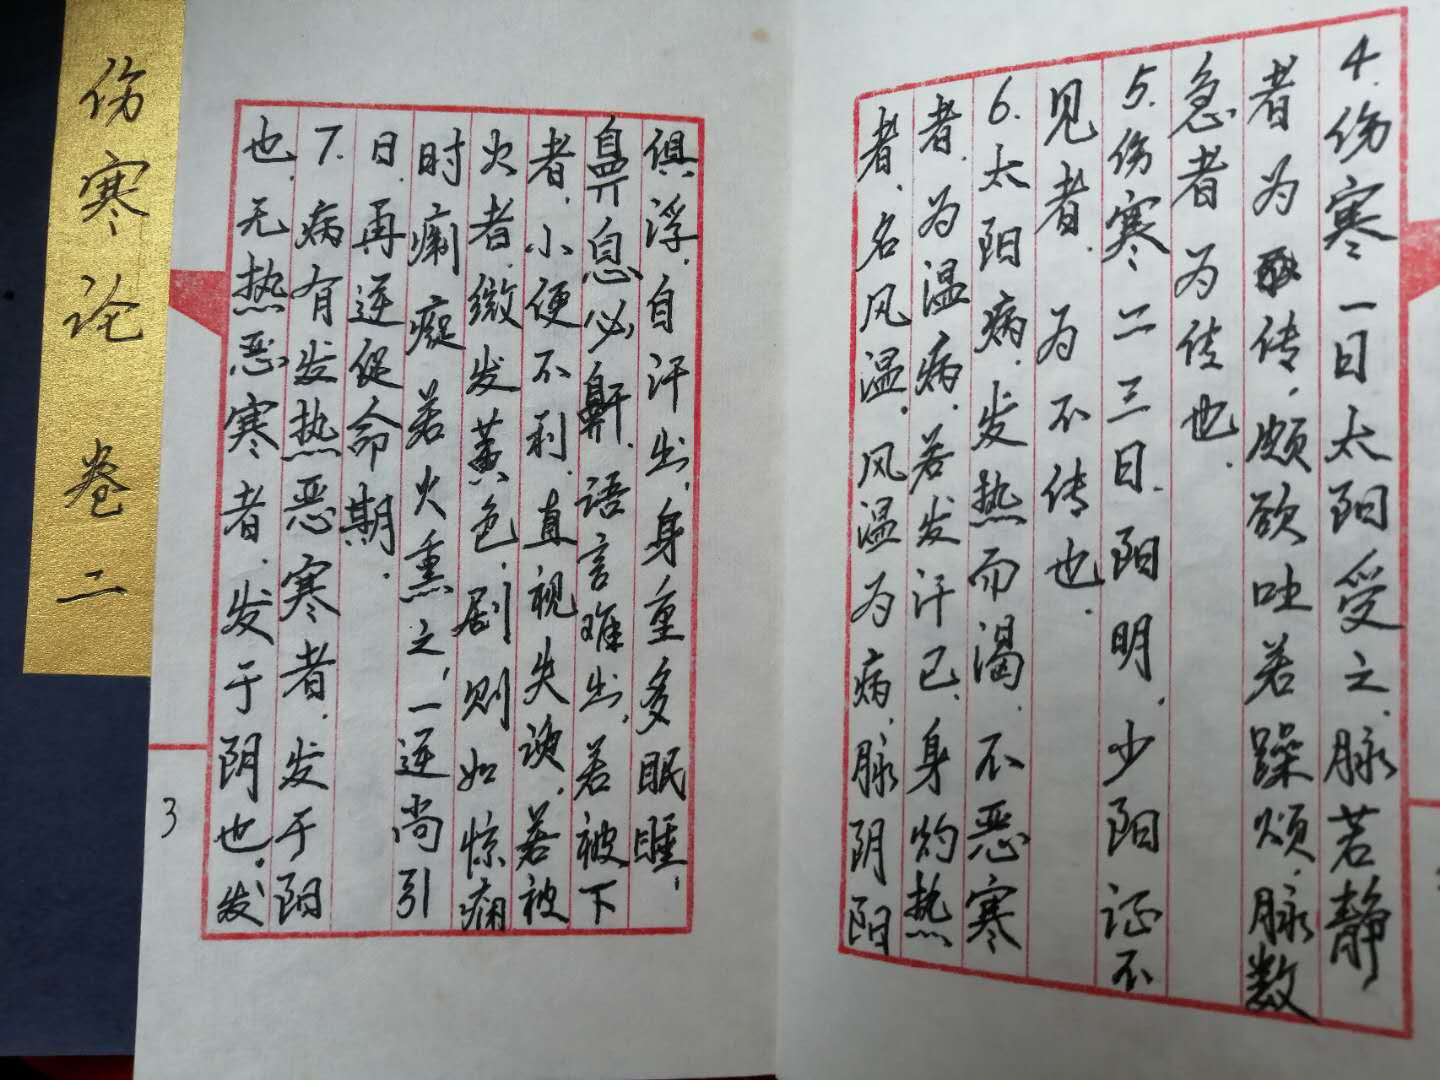 4.伤寒一日太阳受之.脉若静
者为传.颇欲吐若躁烦.脉数
急者为传也.
5.伤寒二三日.阳明.少阳证不
见者.为不传也.
6.太阳病.发热而渴.不恶寒
者.为温病.若发汗已.身灼热
者.名风温.风温为病.脉阴阳
俱浮.自汗出.身重多眠睡,
鼻息必鼾.语言难出.若被下
者.小便不利.直视失溲.若被
火者.微发黄色.剧则如惊痫
时 若火熏之,一逆尚引
日.再逆促命期.
7.病有发热恶寒者.发于阳
也.无热恶寒者.发于阴也.发
3
伤寒论 卷二